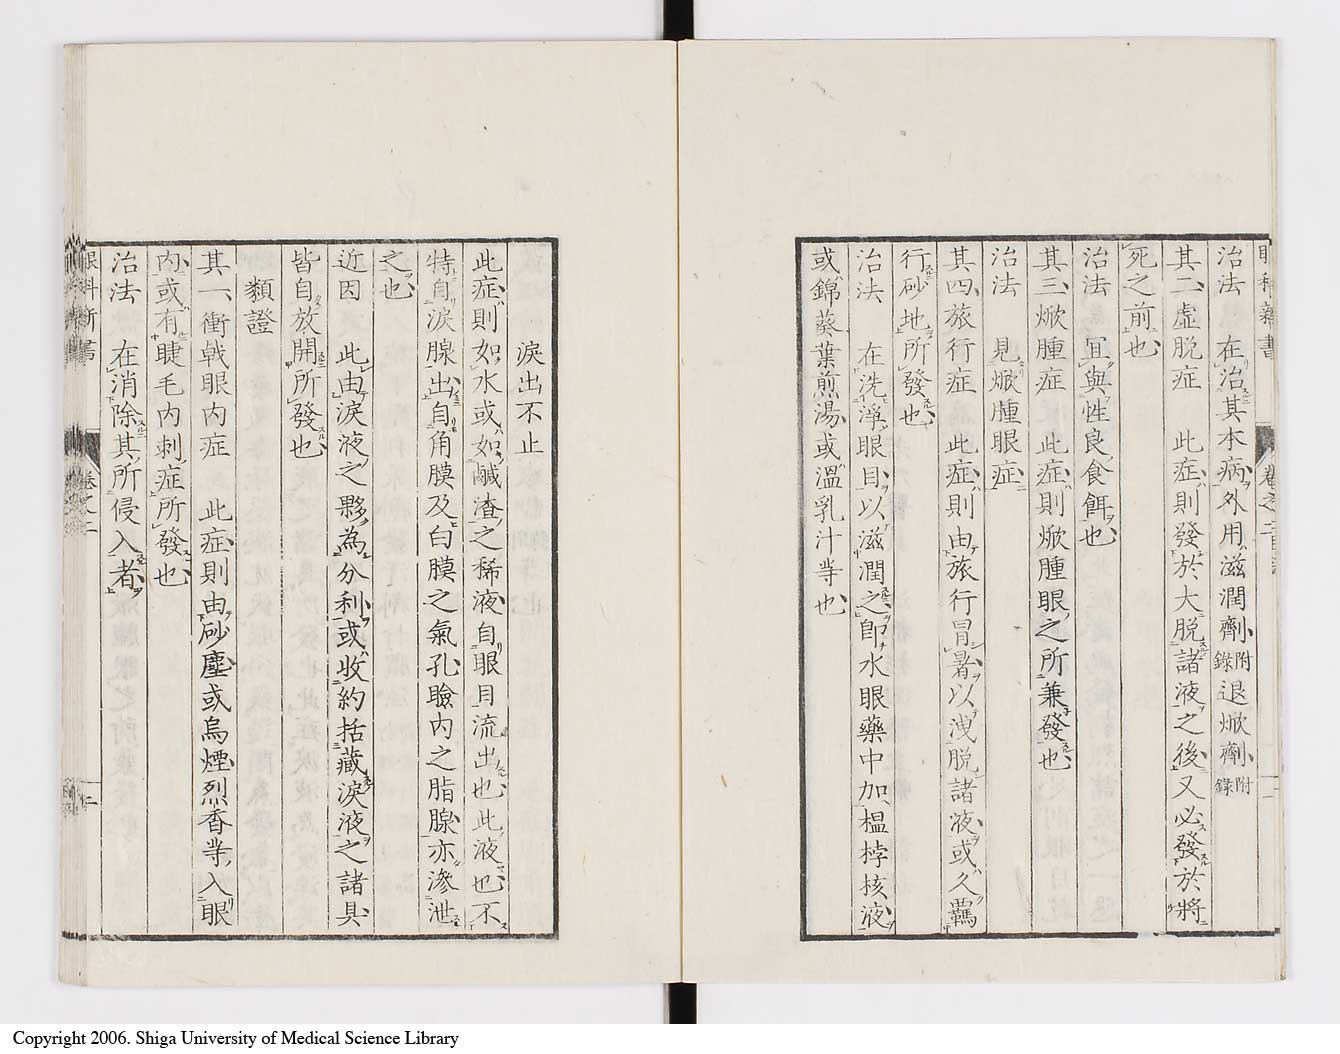 治法　在治其本病外用滋潤劑附錄退焮劑附錄
其二、虛脫症　此症則發於大脫諸液之後又必發於將
死之前也
治法　宜與性良食餌也
其三、焮腫症　此症則焮腫眼之所兼發也
治法　見焮腫眼症
其四、旅行症　此症則由旅行冒暑以洩脫諸液或久羈
行砂地所發也
治法　在洗淨眼目以滋潤之卽水眼藥中加榲桲核液
或錦葵葉煎湯或溫乳汁等也
淚出不止
此症則如水或如鹹渣之稀液自眼目流出也此液也不
特自淚腺出自角膜及白膜之氣孔瞼內之脂腺亦滲泄
之也
近因　此由淚液之夥為分利或收約括藏淚液之諸具
皆自放開所發也
類證
其一、衝戟眼內症　此症則由砂塵或烏煙烈香等入眼
內或有睫毛內刺症所發也
治法　在消除其所侵入者
眼科新書　卷之二
Copyright 2006. Shiga University of Medical Science Library